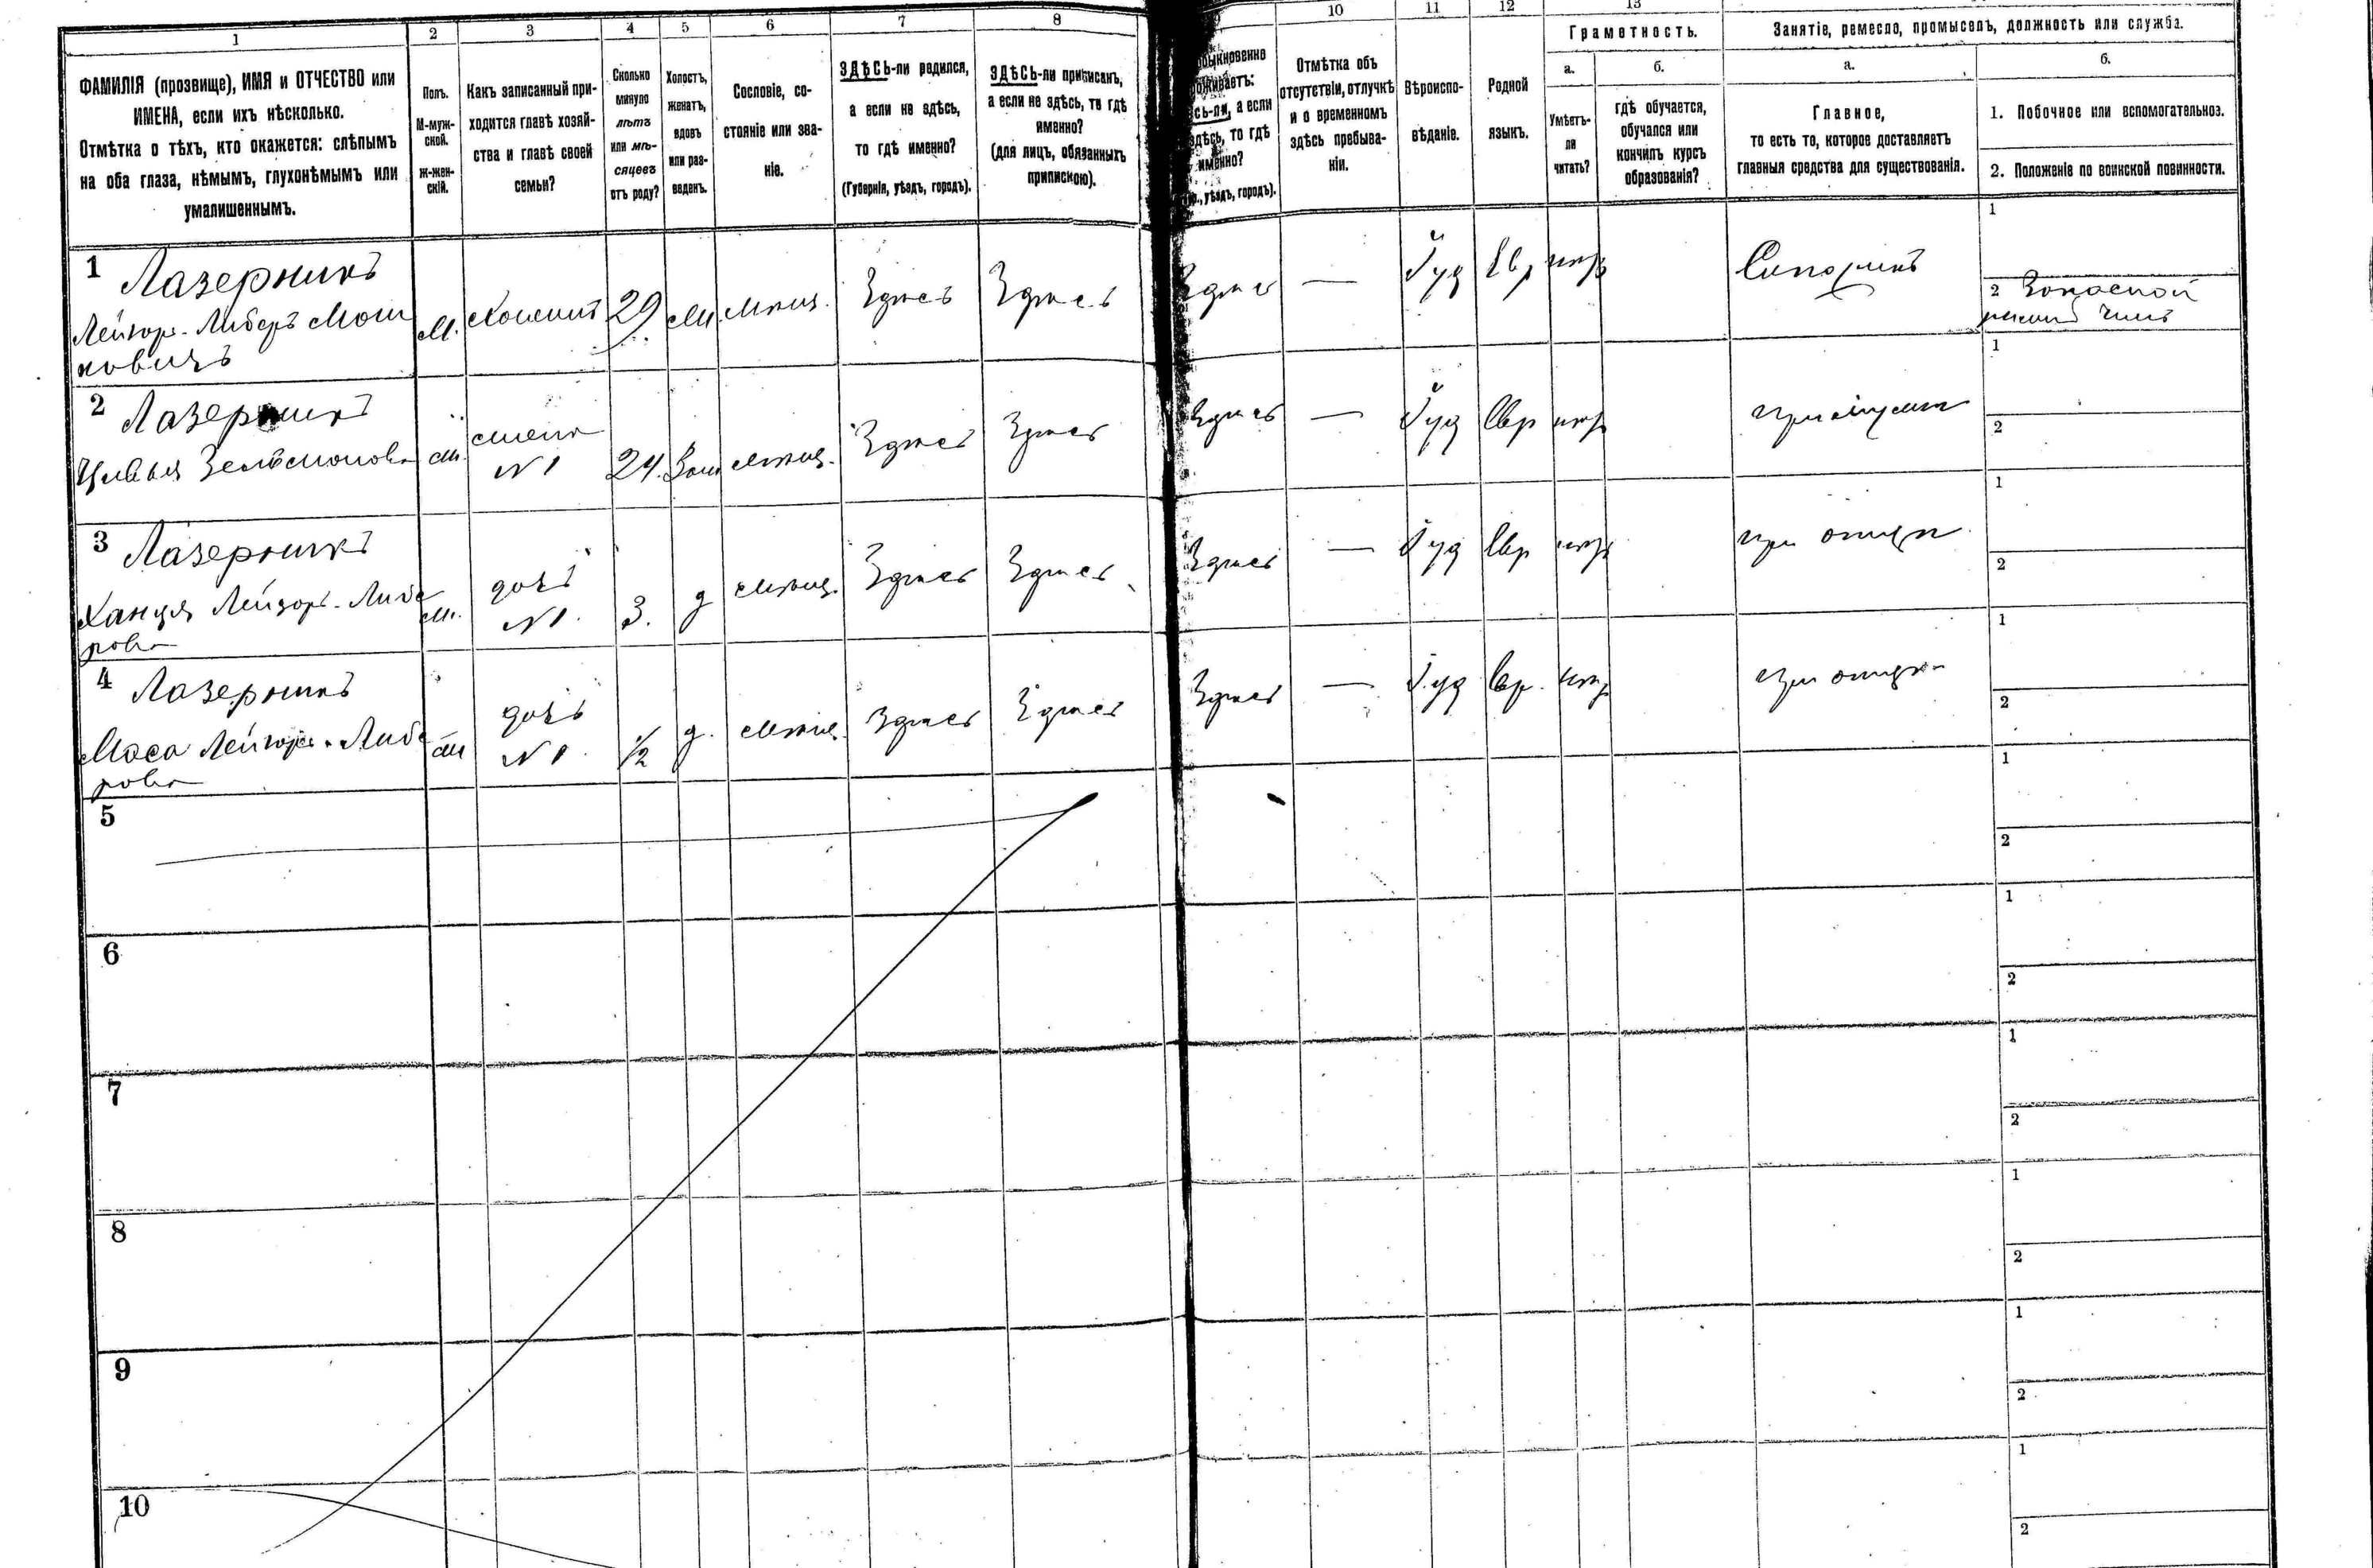 1
2
3
4
5
6
7
8
10
11
12
13
ФАМИЛІЯ (прозвище), ИМЯ и ОТЧЕСТВО или
ИМЕНА, если ихъ нѣсколько.
Отмѣтка о тѣхъ, кто окажется: слѣпымъ
на оба глаза, нѣмымъ, глухонѣмымъ или
умалишеннымъ.
Полъ.
М-муж-
ской.
Ж-жен-
скій.
Какъ записанный при-
ходится главѣ хозяй-
ства и главѣ своей
семьи?
Сколько
минуло
лѣтъ
или мѣ-
сяцевъ
отъ роду?
Холостъ,
женатъ,
вдовъ
или раз-
веденъ.
Сословіе, со-
стояніе или зва-
ніе.
ЗДѢСЬ-ли родился,
а если не здѣсь,
то гдѣ именно?
(Губернія, уѣздъ, городъ).
ЗДѢСЬ-ли приписанъ,
а если не здѣсь, то гдѣ
именно?
(для лицъ, обязанныхъ
припискою).
быкновенно
роживаетъ:
сь-ли, а если
здѣсь, то гдѣ
именно?
уѣздъ, городъ).
Отмѣтка объ
отсутствіи, отлучкѣ
и о временномъ
здѣсь пребыва-
ніи.
Вѣроиспо-
вѣданіе.
Родной
языкъ.
Грамотность.
а.
Умѣетъ-
ли
читать?
б.
гдѣ обучается,
обучался или
кончилъ курсъ
образованія?
Занятіе, ремесло, промыселъ, должность или служба.
а.
Главное,
то есть то, которое доставляетъ
главныя средства для существованія.
б.
1. Побочное или вспомогательное.
2. Положеніе по воинской повинности.
1 Лазерникъ
Лейзоръ-Либеръ Мош
ковичъ
М.
Хозяинъ
29
Мѣщ.
Здѣсь
Здѣсь
Здѣсь
—
Іуд
Евр
Сапожникъ
1
2
2 Лазерникъ
Цивья
жена
N 1
24.
Зам
мѣщ.
Здѣсь
Здѣсь
Здѣсь
—
Іуд
Евр
при мужѣ
1
2
3 Лазерникъ
Ханця Лейзоръ-Либе
рова
дочь
N 1.
3.
д
мѣщ.
Здѣсь
Здѣсь
Здѣсь
—
Іуд
Евр
при отцѣ
1
2
4 Лазерникъ
Лейзоръ-Либе
рова
дочь
N 1.
1/2
д.
мѣщ.
Здѣсь
Здѣсь
Здѣсь
—
Іуд
Евр.
при отцѣ
1
2
5
1
2
6
1
2
7
1
2
8
1
2
9
1
2
10
1
2